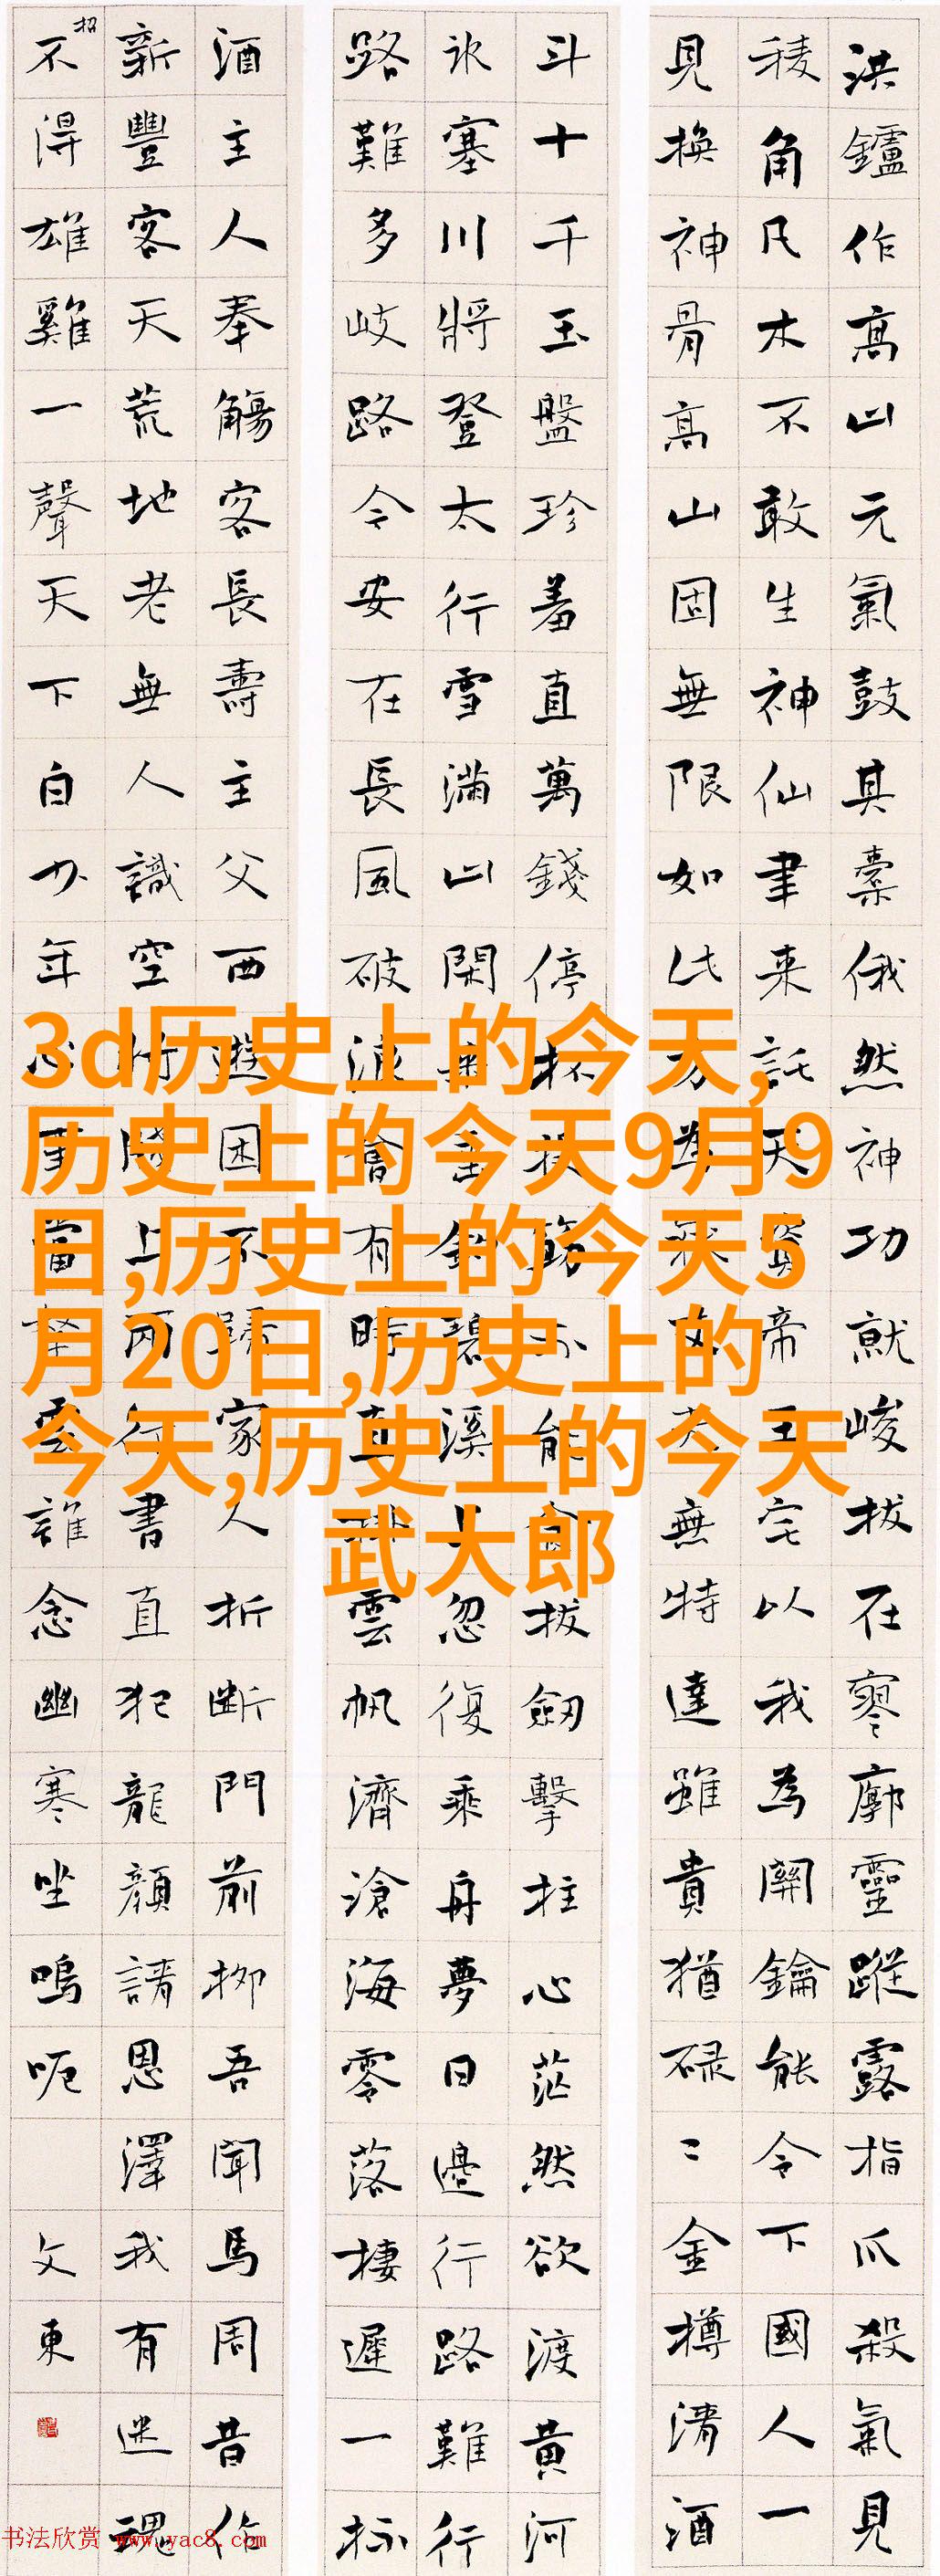 洪鑪作高山元氣鼓其橐俄然神功就峻拔在寥廓靈蹤露指爪殺氣見
稜角凡木不敢生神仙聿来託天資帝王宅以我為關鑰能令下國人一
見換神骨高山固無限如此方為無特達雖貴猶碌〻金樽清酒
斗十千玉盤珍羞直萬錢停杯投筯不能食拔劒擊柱心茫然欲渡黄河
氷塞川將登太行雪滿山閑垂釣碧溪上忽復乘舟夢日邊行路難行
路難多岐路今安在長風破浪會有時直挂雲帆濟滄海零落棲遲一杯
酒主人奉觴客長壽主父西遊困不歸家人折斷門前柳吾聞馬周昔作
新豐客天荒地老無人識空將牋上兩行書直犯龍顔請恩澤我有迷魂
招
不得雄雞一聲天下白少年心事當拏雲誰念幽寒坐嗚呃
文東
3d历史上的今天,
历史上的今天9月9
日,历史上的今天5
月20日,历史上的
今天,历史上的今天
武大郎
书法欣赏 www.yac8.com